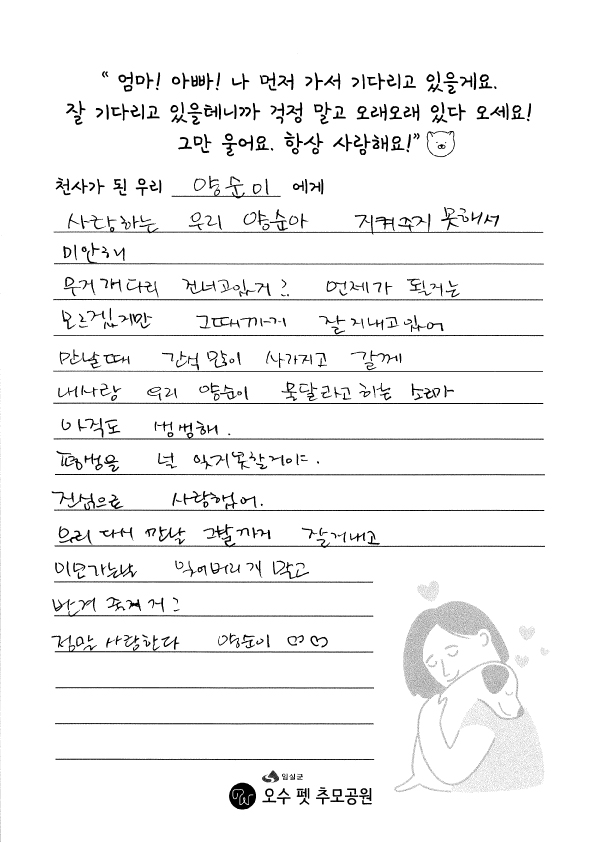 “ 엄마! 아빠! 나 먼저 가서 기다리고 있을게요.
잘 기다리고 있을테니까 걱정 말고 오래오래 있다 오세요!
그만 울어요. 항상 사랑해요!”
천사가 된 우리 양순이 에게
사랑하는 우리 양순아 지켜주지 못해서
미안해
무지개다리 건너고있지? 언제가 될지는
모르겠지만 그때까지 잘지내고있어
만날때 간식 많이 사가지고 갈께
내사랑 우리 양순이 옹달라고 하는 소리가
아직도 생생해.
평생을 널 잊지못할거야.
진심으로 사랑했어.
우리 다시 만날 그날까지 잘지내고
이모가는날 잊어버리지 말고
반겨 줄거지?
정말 사랑한다 양순이 ♡♡
임실군
오수 펫 추모공원